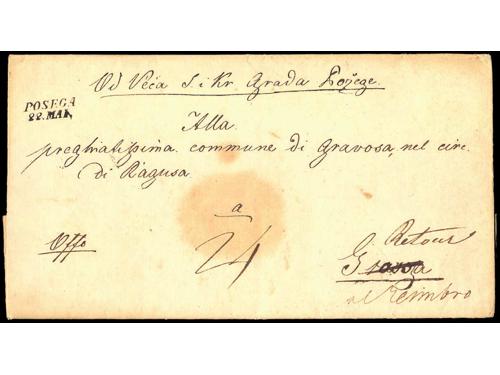 Od Veća S. i Kr. Grada Požege.
POSEGA
22. MAI.
Alla
pregiatissima commune di Gravosa, nel circ.
di Ragusa.
a
Offo
24
Retour